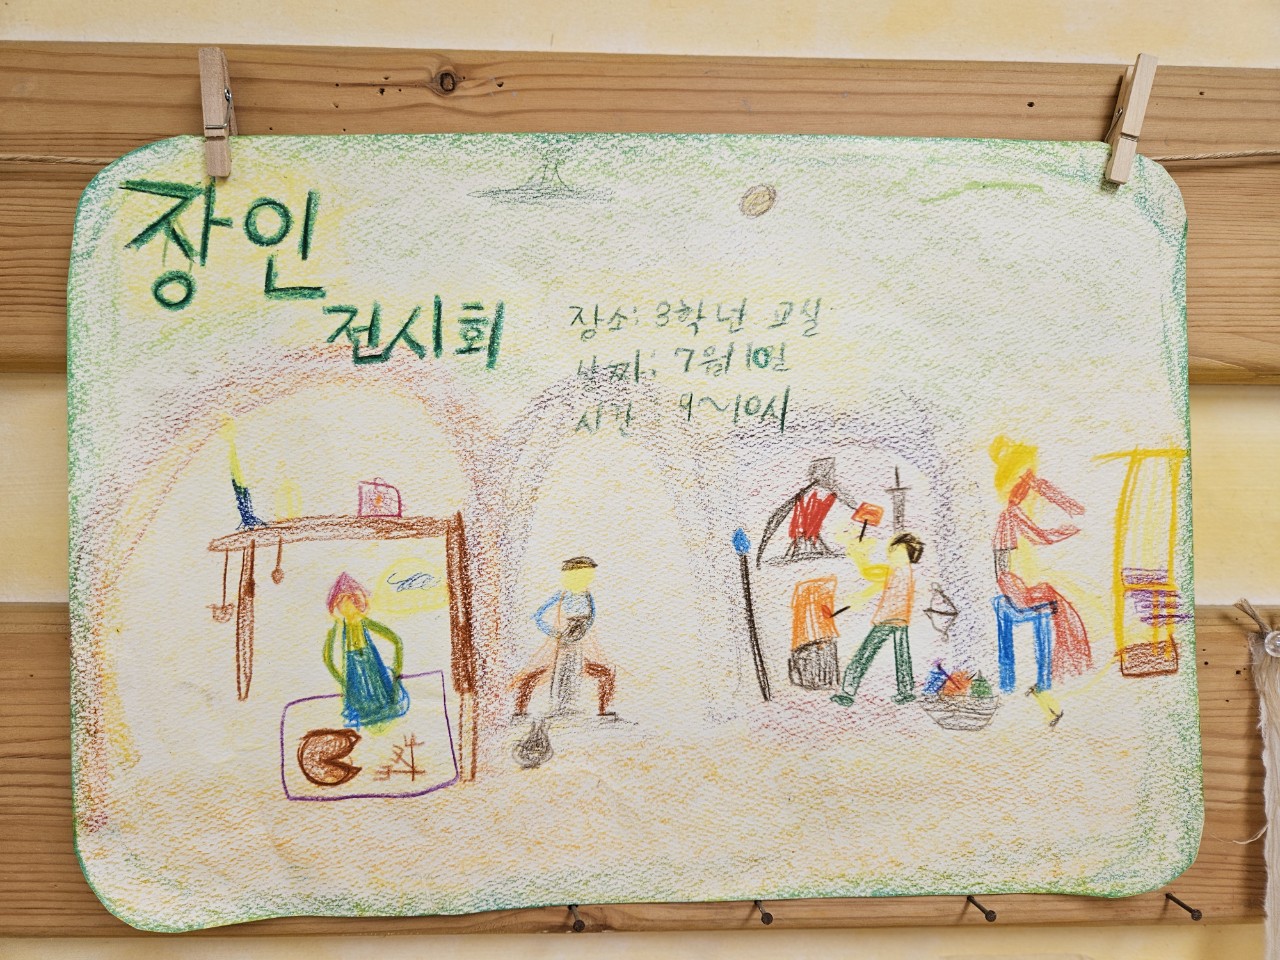 장인
전시회
장소: 3학년 교실
날짜: 7월 10일
시간: 9~10시